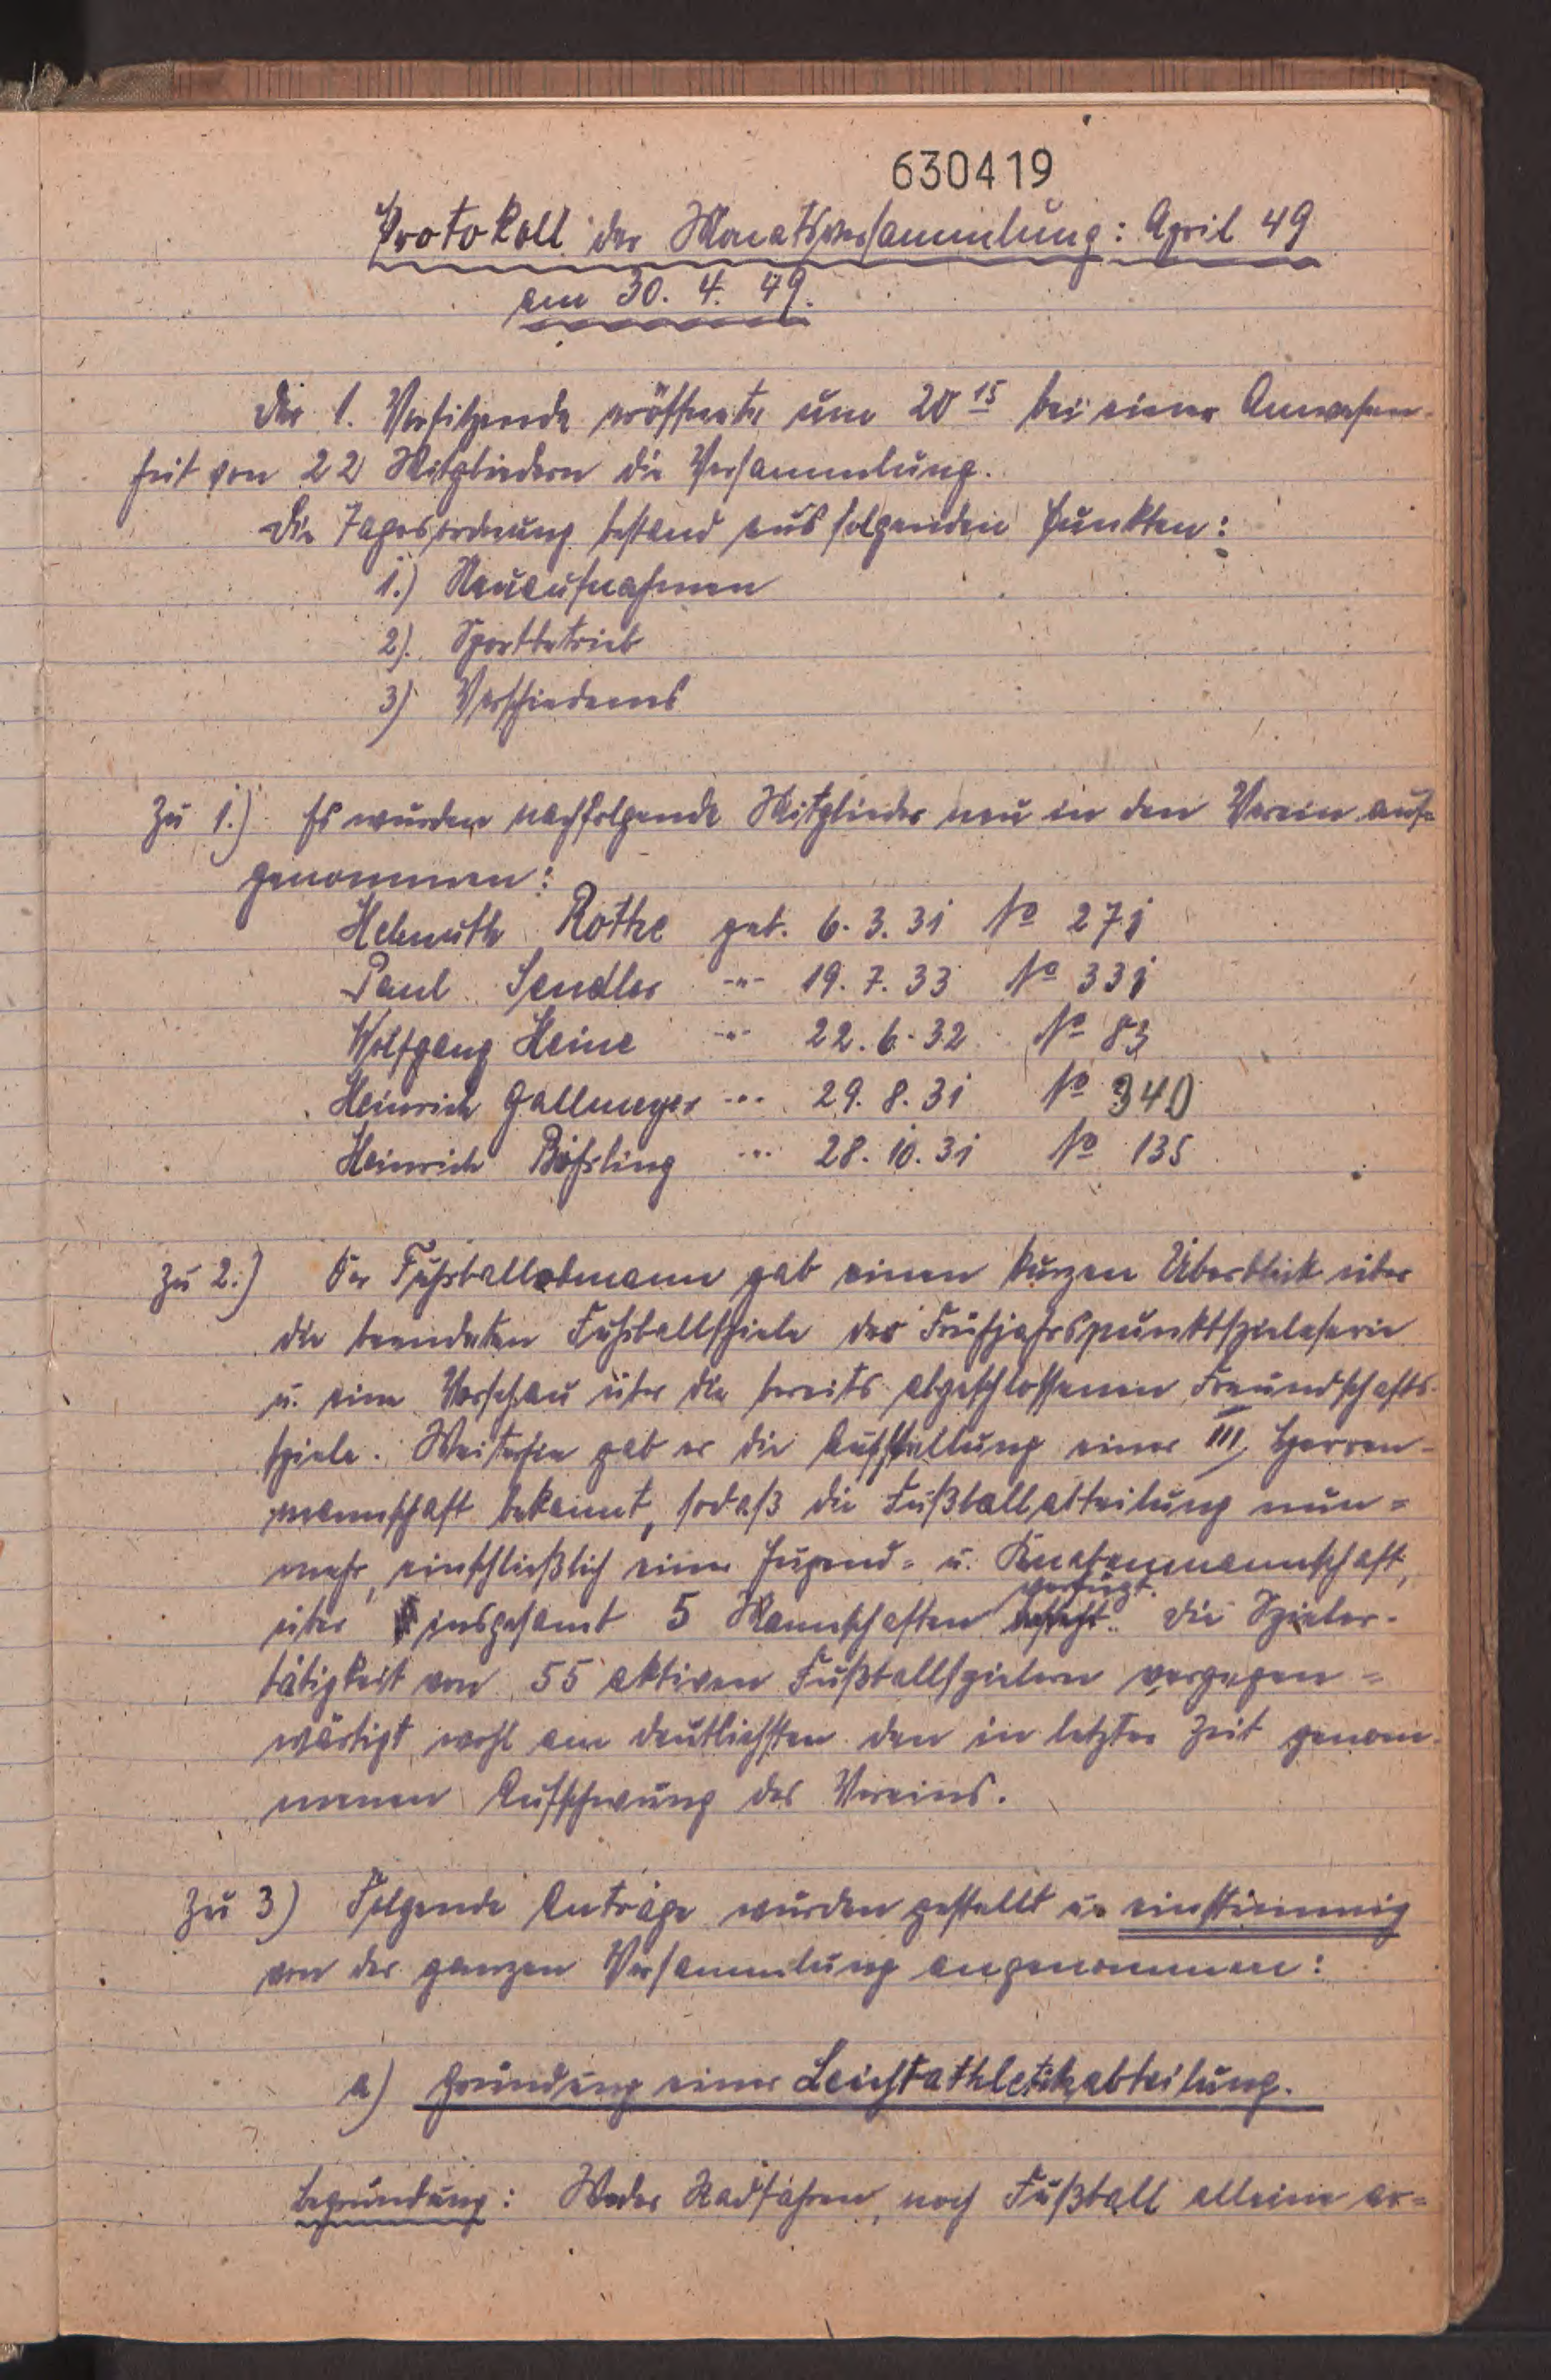 630419
Protokoll der Monatsversammlung: April 49
am 30. 4. 49.
Der 1. Vorsitzende eröffnete um 20 15 bei einer Anwesen-
heit von 22 Mitgliedern die Versammlung.
Die Tagesordnung bestand aus folgenden Punkten:
1.) Neuaufnahmen
2). Sportbetrieb
3) Verschiedenes
Zu 1.) Es wurden nachfolgende Mitglieder neu in den Verein auf-
genommen:
Helmuth Rothe geb. 6. 3. 31 No 271
Paul Sandler -"- 19. 7. 33 No 331
Wolfgang Heine -"- 22. 6. 32 No 83
Heinrich Gallmeyer -"- 29. 8. 31 No 340
Heinrich Bößling -"- 28. 10. 31 No 135
Zu 2.) Der Fußballobmann gab einen kurzen Überblick über
die beendeten Fußballspiele der Frühjahrspunktspielserie
u. eine Vorschau über die bereits abgeschlossenen Freundschafts-
spiele. Weiterhin gab er die Aufstellung einer III. Herren-
mannschaft bekannt, sodaß die Fußballabteilung nun=
mehr, einschließlich einer Jugend= u. Knabenmannschaft,
über insgesamt 5 Mannschaften verfügt. Die Spieler-
tätigkeit von 55 aktiven Fußballspielern vergegen=
wärtigt wohl am deutlichsten den in letzter Zeit genom-
menen Aufschwung des Vereins.
Zu 3) Folgende Anträge wurden gestellt u. einstimmig
von der ganzen Versammlung angenommen:
a) Gründung einer Leichtathletikabteilung.
Begründung: Weder Radfahren, noch Fußball alleine er=